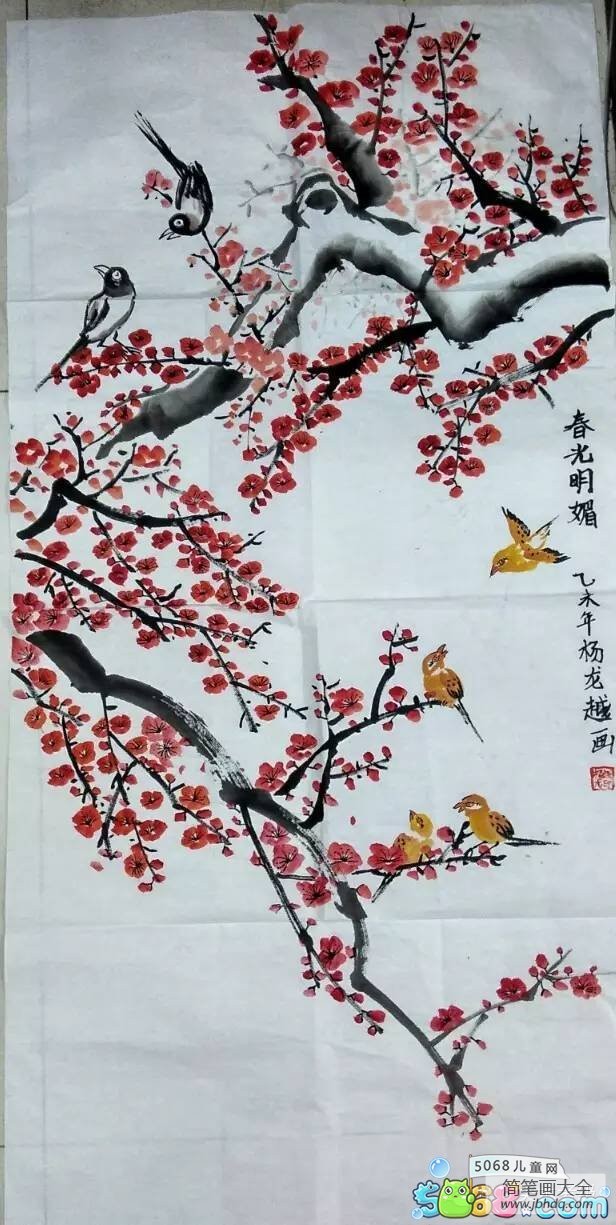 春光明媚
乙未年杨龙越画
5068儿童网
5068.com
简笔画大全
www.jbhdq.com